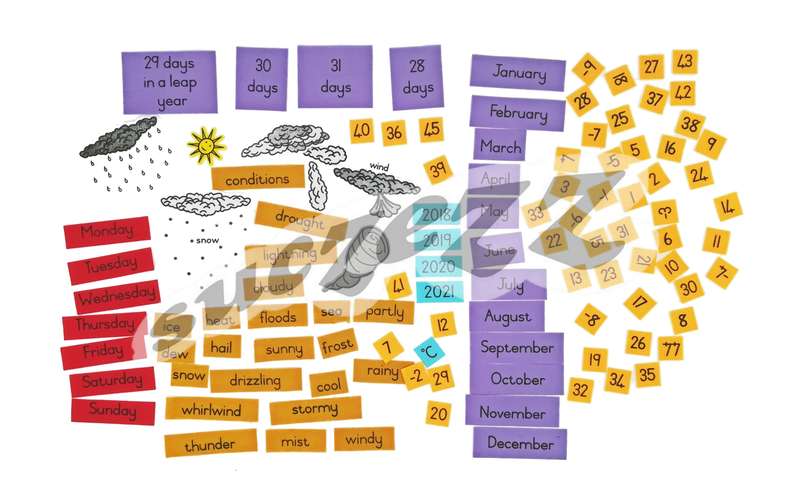 29 days
in a leap
year
30
days
31
days
28
days
January
February
March
April
May
June
July
August
September
October
November
December
conditions
wind
snow
drought
lightning
cloudy
ice
heat
floods
sea
partly
dew
hail
sunny
frost
snow
drizzling
cool
rainy
whirlwind
stormy
thunder
mist
windy
Monday
Tuesday
Wednesday
Thursday
Friday
Saturday
Sunday
2018
2019
2020
2021
°C
40
36
45
39
41
12
7
-2
29
20
-9
18
27
43
28
25
37
42
-7
38
9
-5
5
16
3
2
24
33
1
14
22
31
6
11
13
23
10
30
17
-8
8
26
19
34
35
32
suczezz